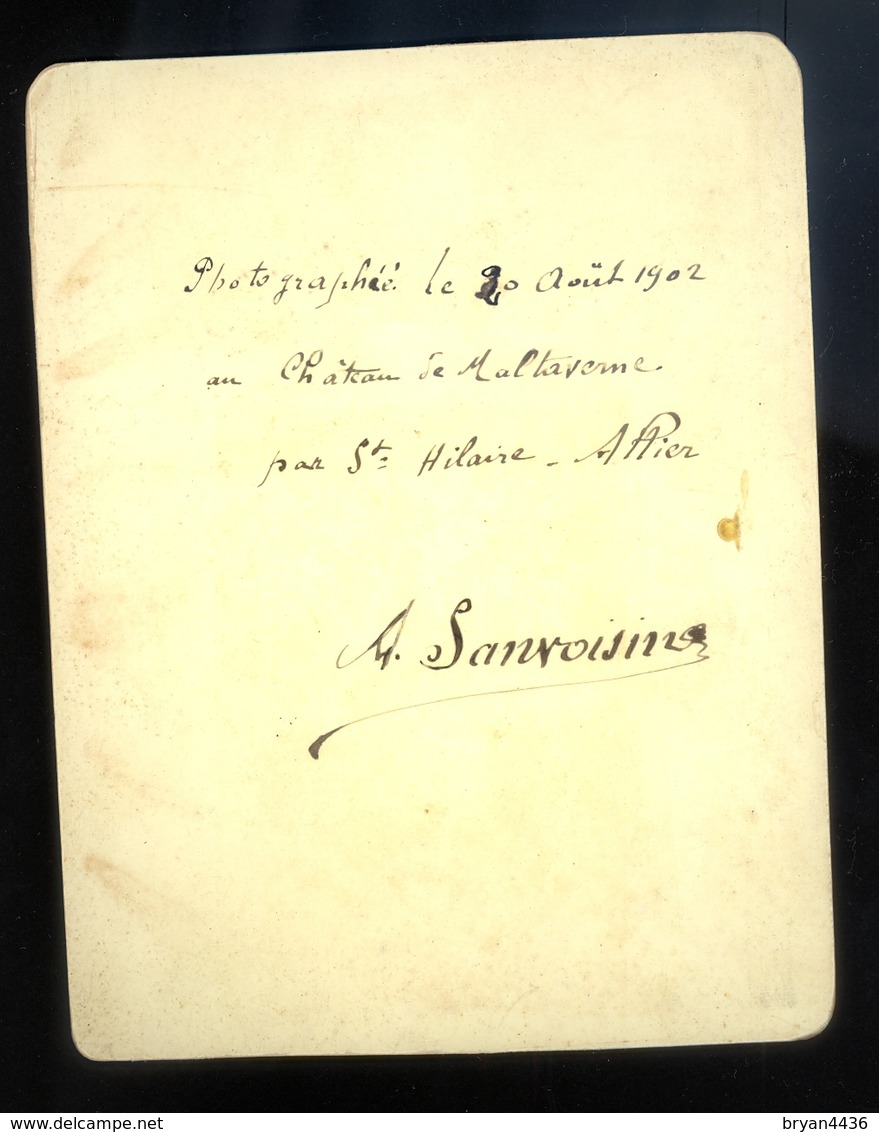 Photographiée le 20 Août 1902
au Château de Maltaverne.
par St Hilaire - Allier
A. Sanvoisin
delcampe.net
bryan4436